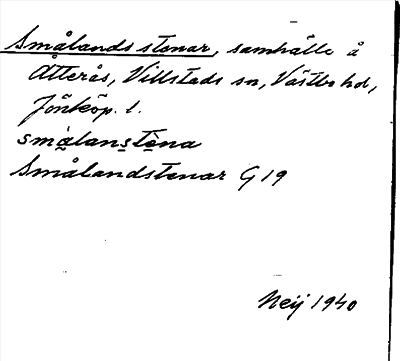 Smålandsstenar, samhälle å
Åtterås, Villstads sn, Västbo hd,
Jönköp. l.
smålanstèna
Smålandstenar G 19
Neij 1940